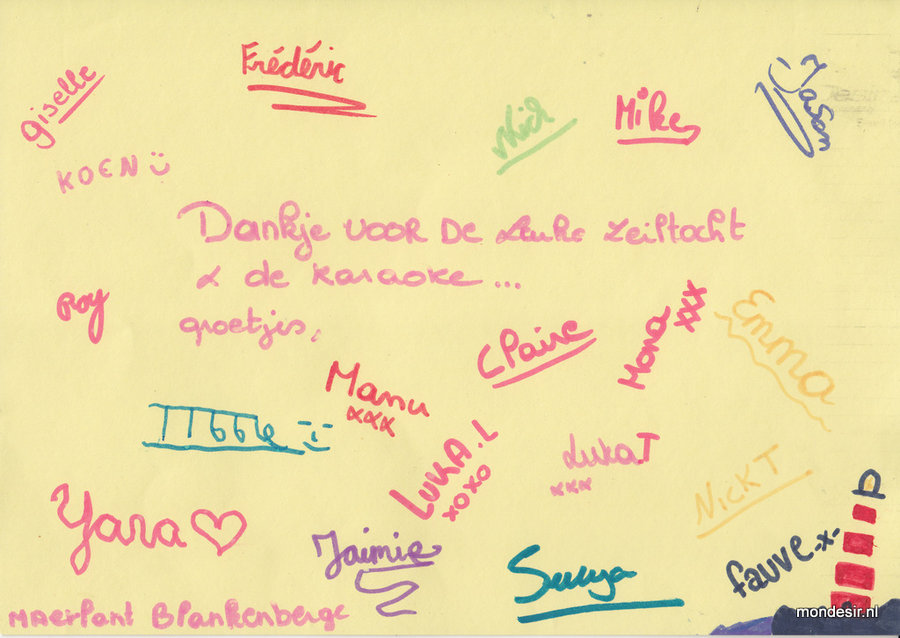 Frédéric
giselle
Nick
Mike
Jason
KOEN
Dankje VOOR De Leuke zeiltocht
& de karaoke...
groetjes,
Roy
Claire
Mona
xxx
Emma
Manu
xxx
LUKA.L
xoxo
LukaT
xxx
NICKT
Yara
Jaimie
fauve -x-
MAerlant Blankenberge
mondesir.nl